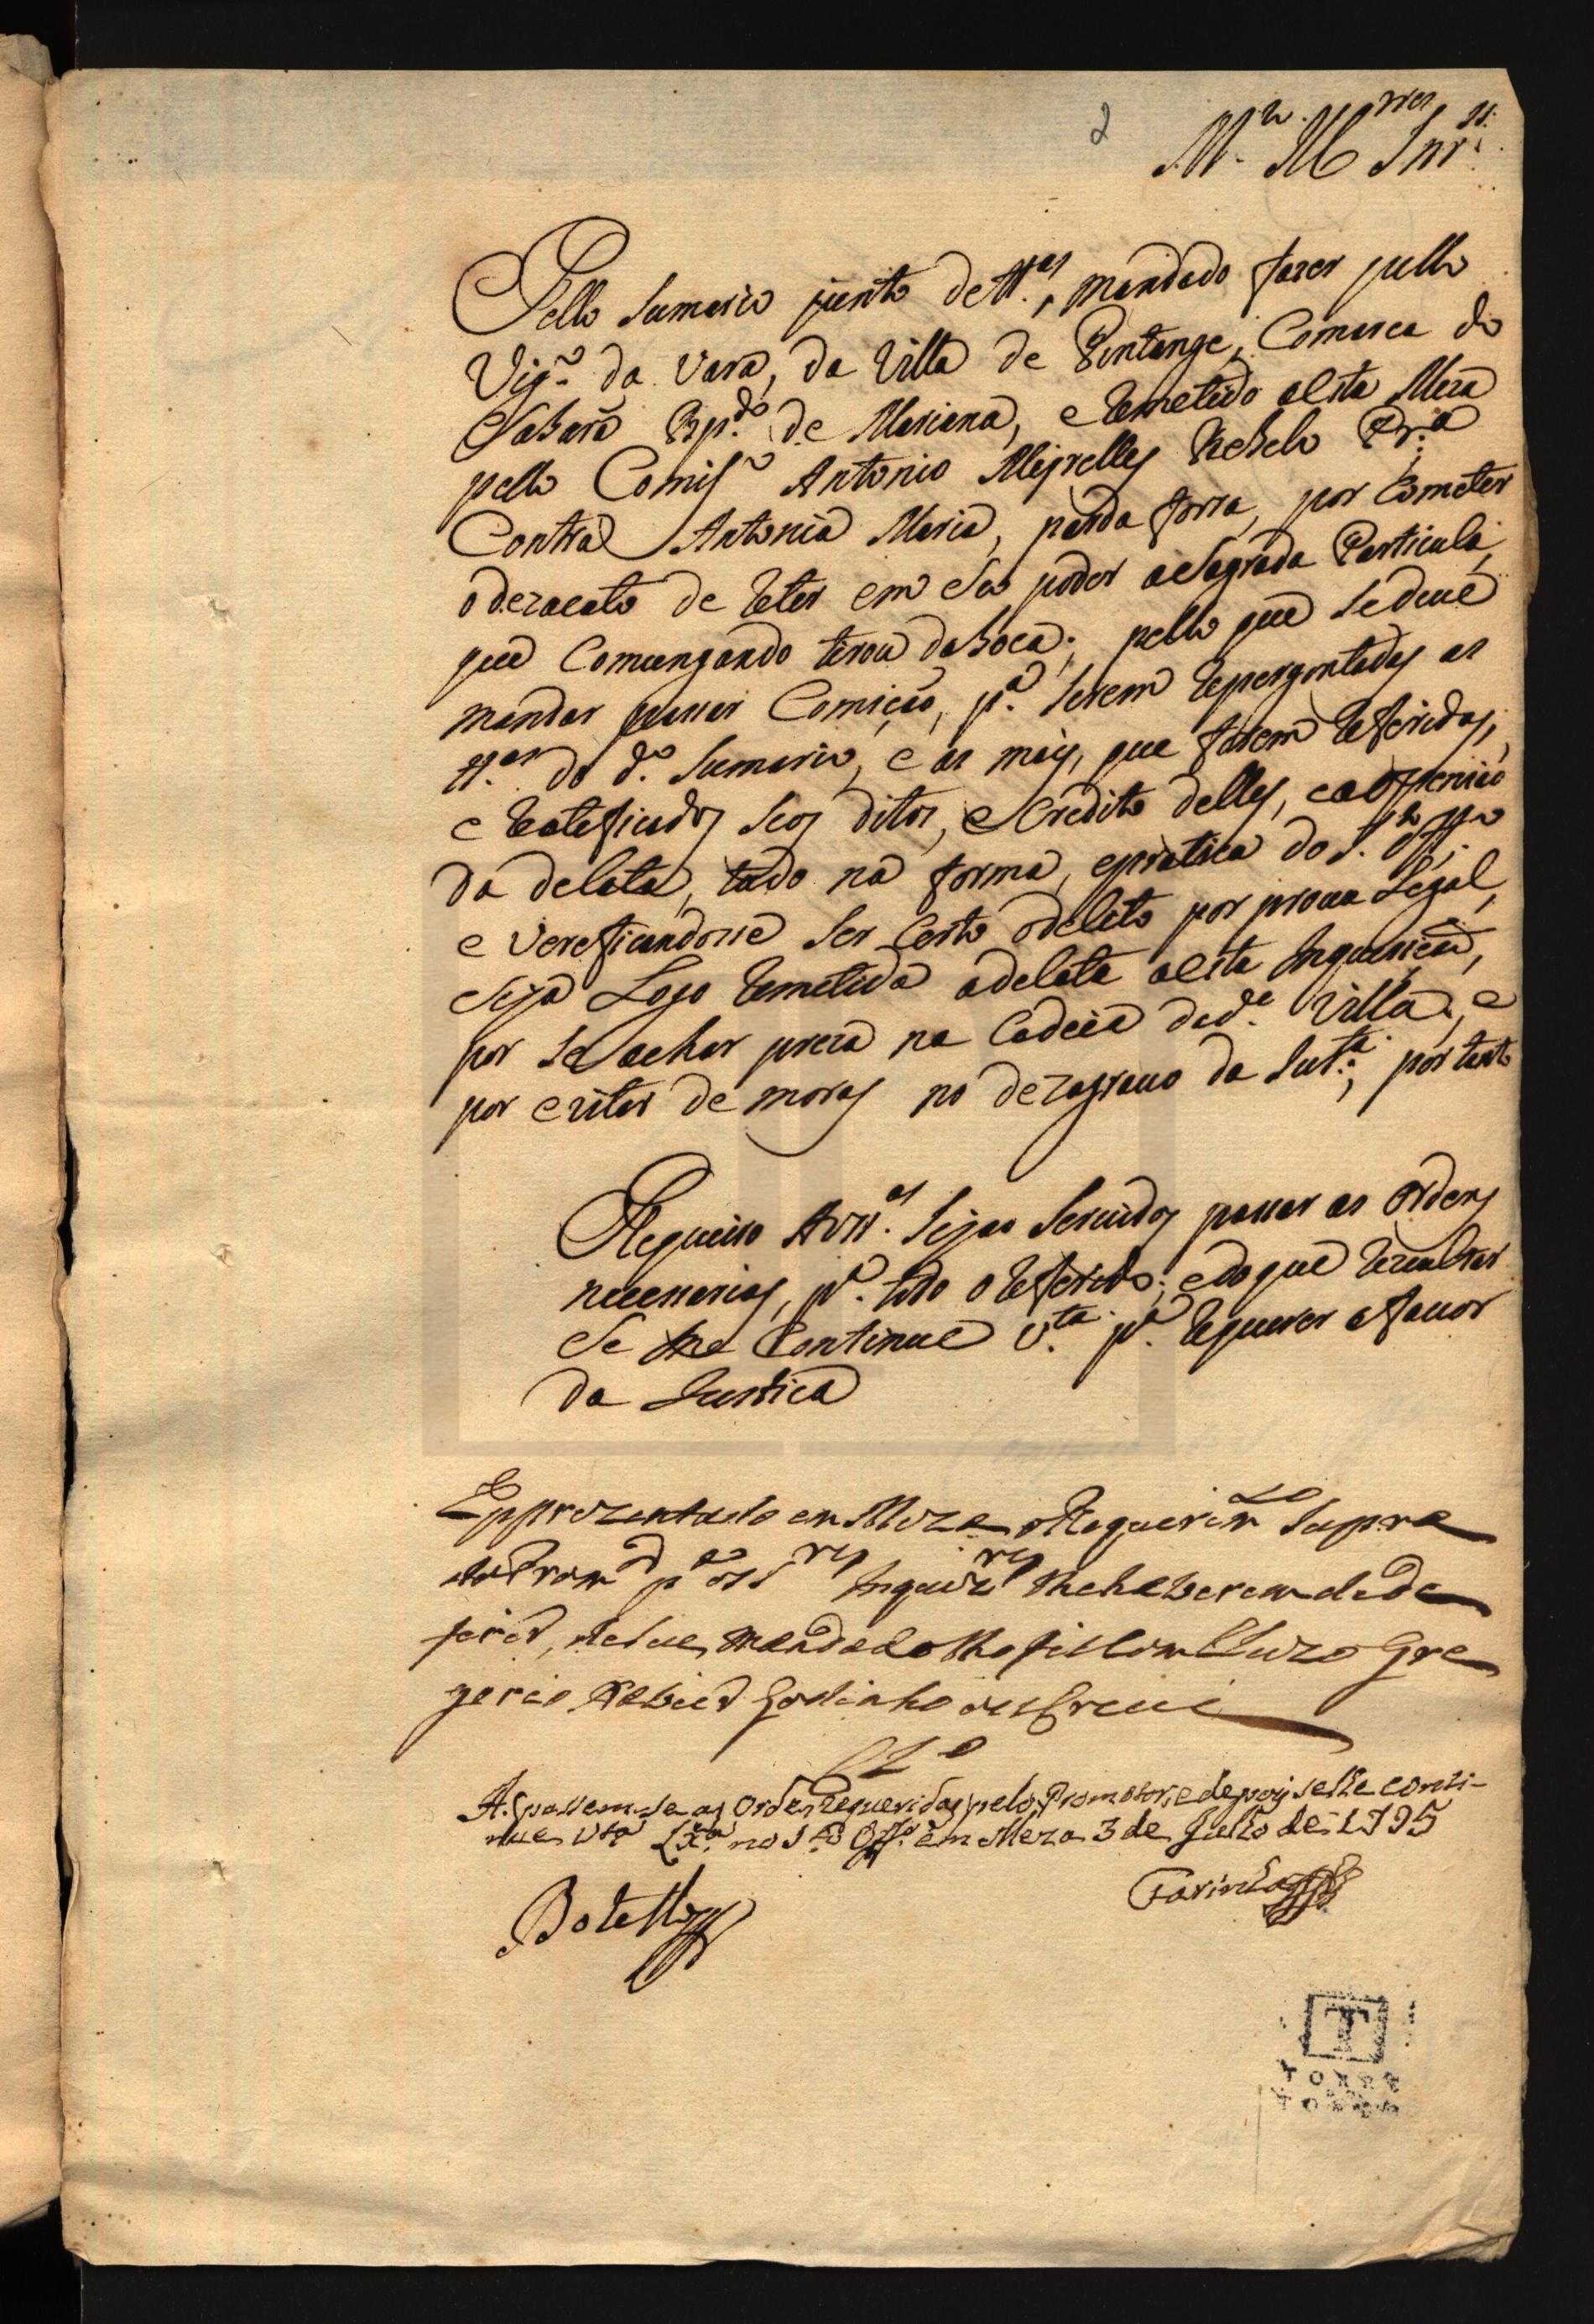 2
M.to M.res Snr.s
Pello Sumario junto de tt.as, mandado fazer pello
Vig.ro da Vara, da Villa de Pintange, Comarca do
Sabará Bp.do de Mariana, e Remetido a esta Meza
pello Comis.ro Antonio Meyrelles Rebelo Pr.a
Contra Antonia Maria, parda forra, por Cometer
o dezacato de Reter em Seo poder a Sagrada Particula,
que Comungando tirou da boca; pello que Se deve
mandar passar Comição, p.a Serem Repergontadas as
tt.as do d.o Sumario, e as mais, que forem Referidas,
e Ratificados Seos ditos, e Credito delles,
da delata, tudo na forma, e pratica do S.to Off.o
e Vereficandosse Ser Certo o delito por prova Legal,
Seja Logo Remetida a delata a esta Inquisição,
por Se achar preza na Cadeia da d.a Villa, e
por evitar demoras no dezagravo da Just.a, portanto
Requeiro A VV.as Sejão Servidos passar as Ordens
necessarias, p.a todo o Referido; e do que Rezultar
Se me Continue v.ta p.a Requerer a favor
da Justica
E apprezentado em Meza o Requerim.to Supra
do Prom.or p.a os S.res Inquiz.res lhe haverem de de
ferir, de Seu mandado lho fis Comcluzo Gre
gorio Xavier Godinho o escrevi
Cl.o
A. passem-se as Ordens requeridas pelo Promotor, e depois se lhe conti-
nue v.ta Lx.a no S.to Off.o em Meza 3 de Julho de 1795
Botelho
Farinha
T
TORRE
TOMBO